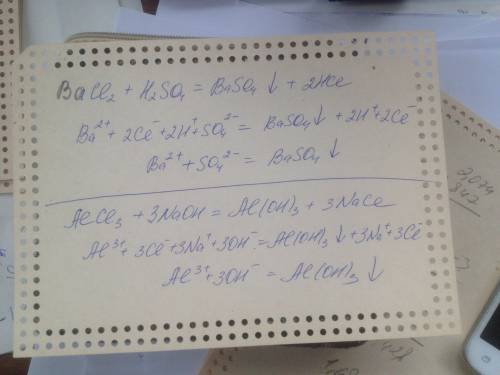 BaCl₂ + H₂SO₄ = BaSO₄ ↓ + 2HCl
Ba²⁺ + 2Cl⁻ + 2H⁺ + SO₄²⁻ = BaSO₄ ↓ + 2H⁺ + 2Cl⁻
Ba²⁺ + SO₄²⁻ = BaSO₄ ↓
AlCl₃ + 3NaOH = Al(OH)₃ + 3NaCl
Al³⁺ + 3Cl⁻ + 3Na⁺ + 3OH⁻ = Al(OH)₃ ↓ + 3Na⁺ + 3Cl⁻
Al³⁺ + 3OH⁻ = Al(OH)₃ ↓